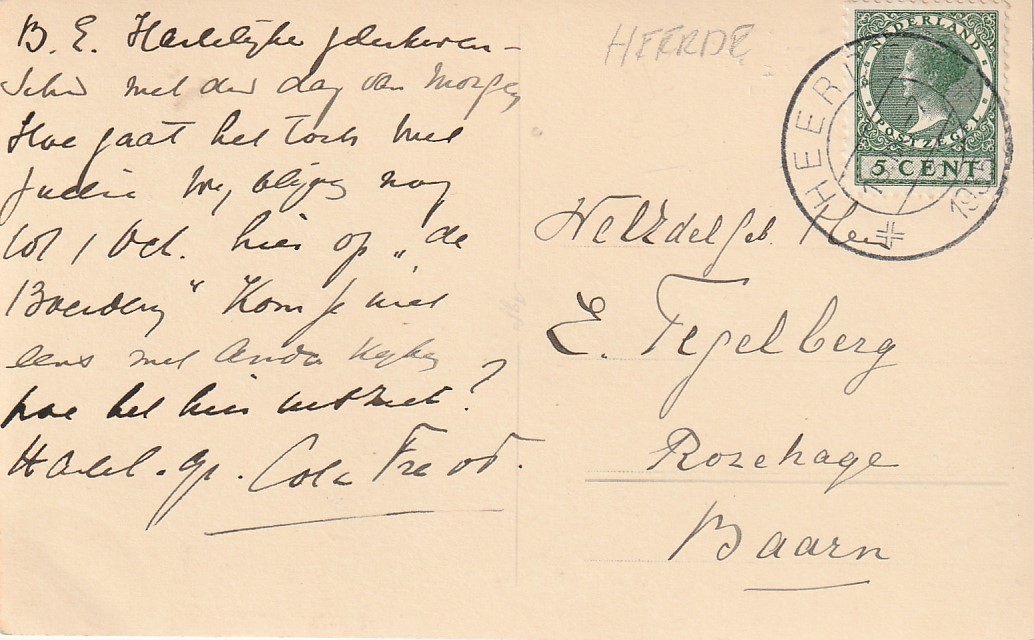 B. E. Hartelijke
met den dag van Morgen
Hoe gaat het toch met
Jullie Wij blijven nog
tot 1 Oct. hier op "de
Boerderij" Kom je niet
eens met Anda kijken
hoe het hier uitziet?
Hartel. gr. Cola
HEERDE
NEDERLAND
POSTZEGEL
5 CENT
HEERDE
WelEdelgeb. Heer
E. Tegelberg
Rozehage
Baarn